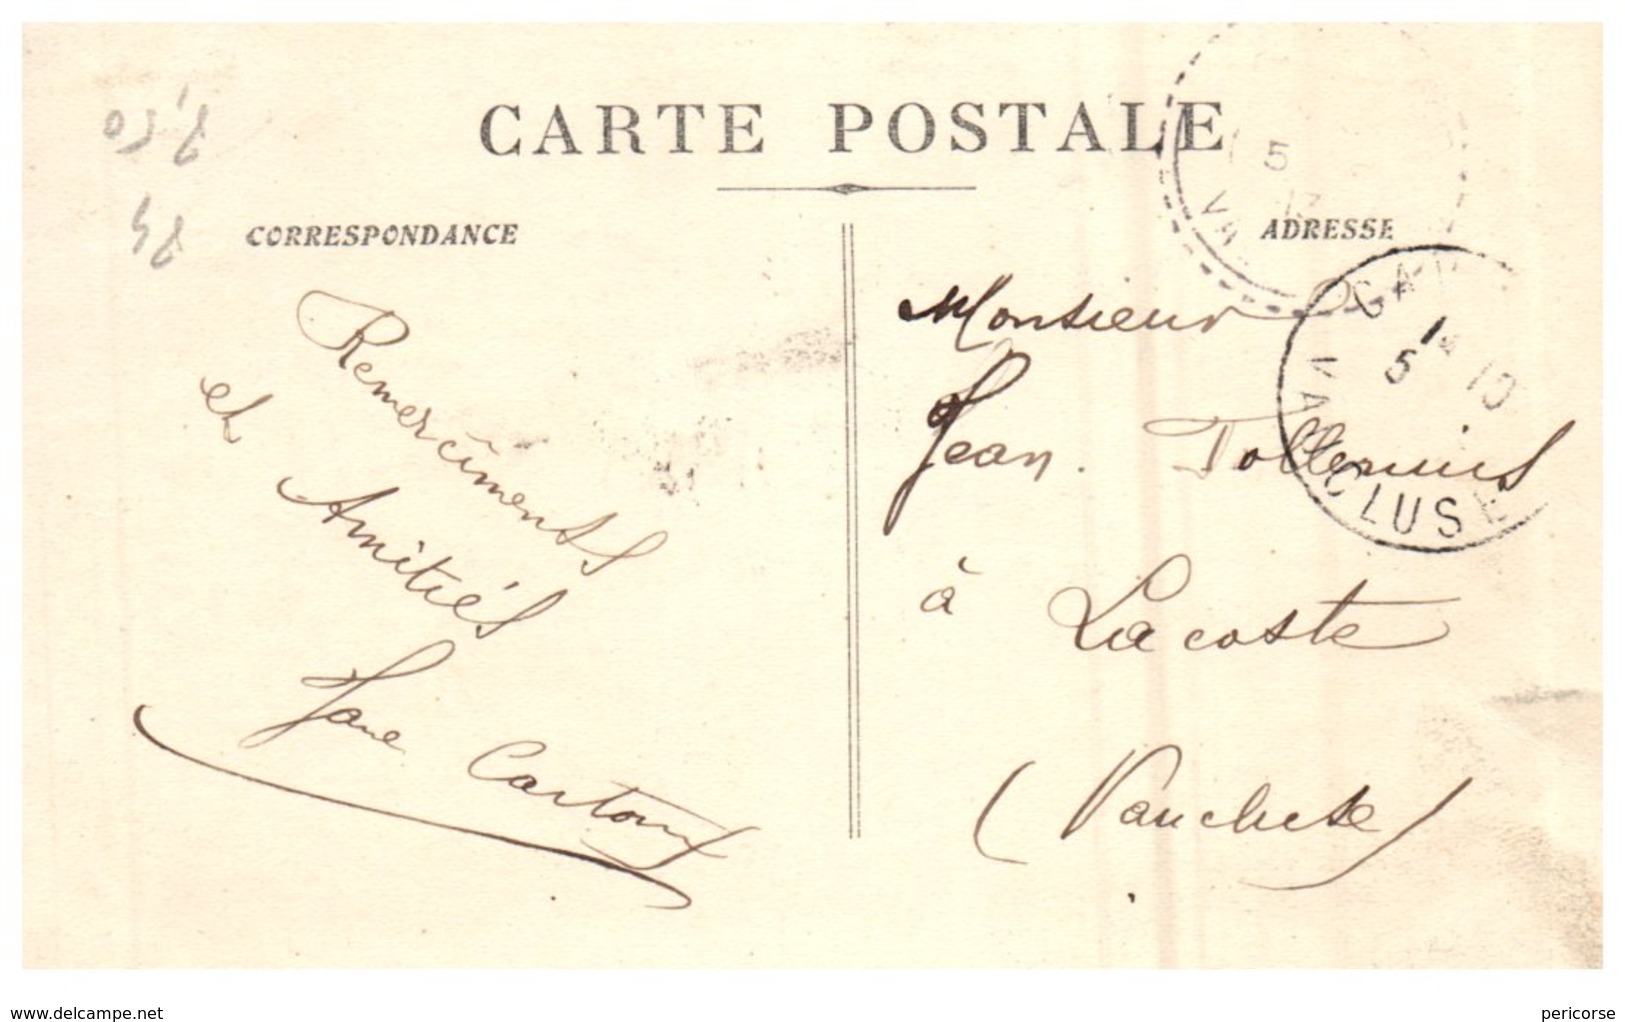 CARTE POSTALE
CORRESPONDANCE
Remerciments
et
Amitiés
Jane Cartoux
ADRESSE
Monsieur
Jean Tollemins
à Lacoste
(Vaucluse)
5
VA
5 10
VAUCLUSE
2,50
24
www.delcampe.net
pericorse